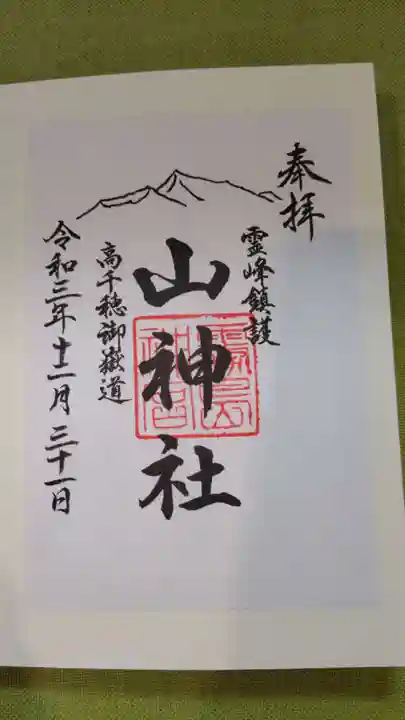 奉拝
霊峰鎮護
山神社
高千穂御嶽道
令和三年十二月三十一日